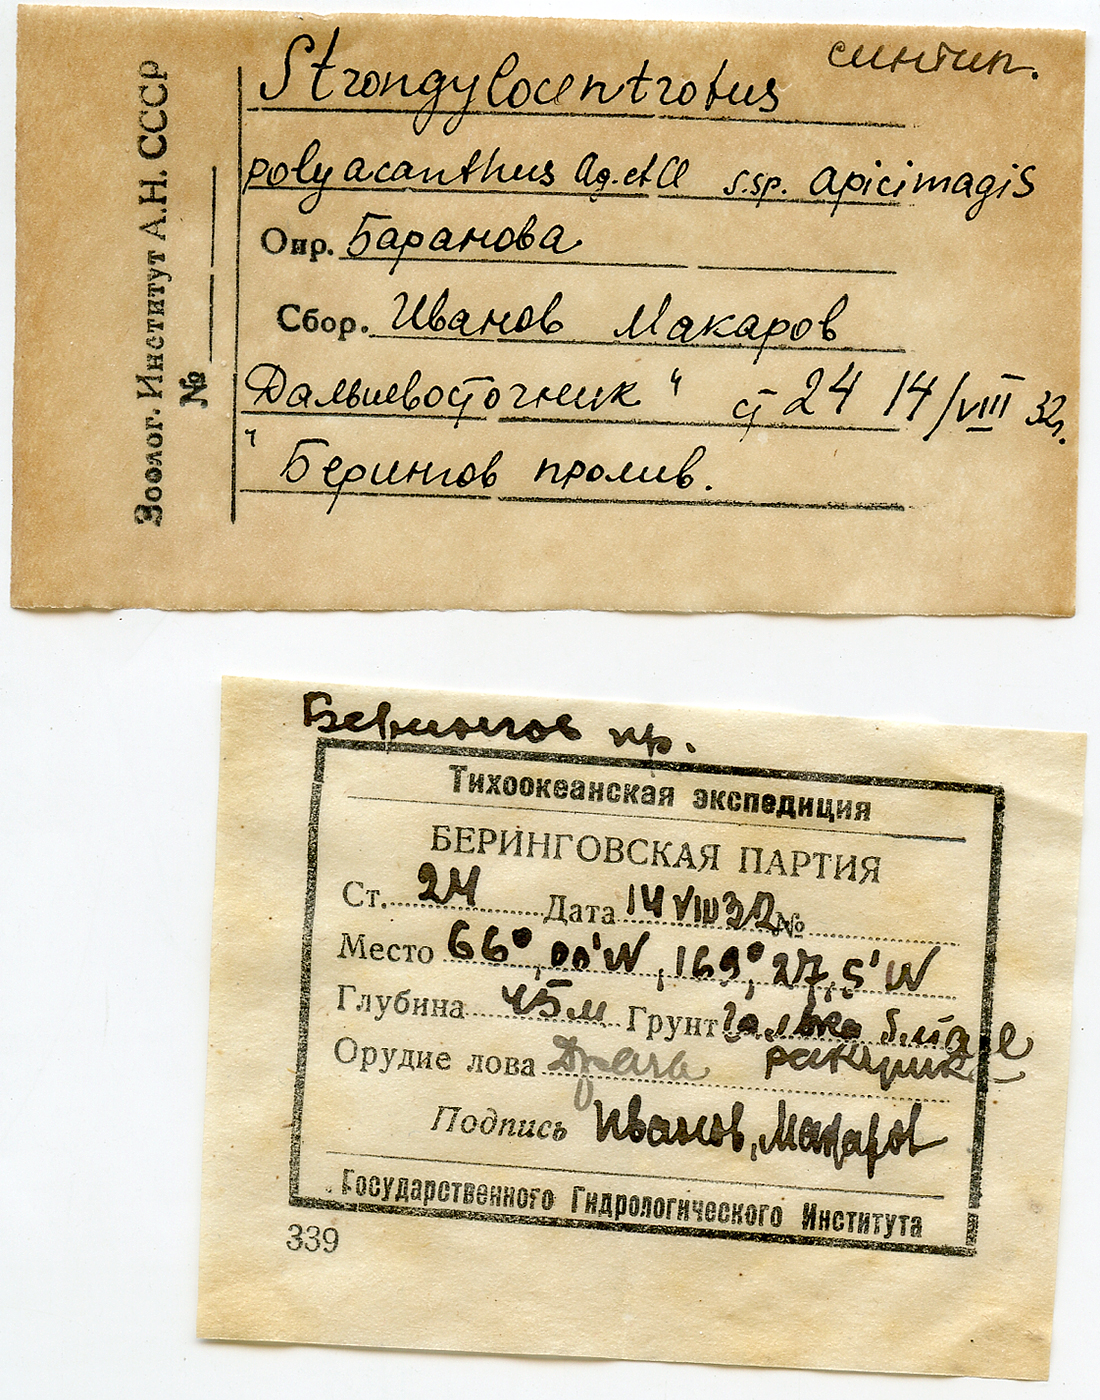 синтип.
Strongylocentrotus
polyacanthus Ag. et Cl s.sp. apicimagis
Опр. Баранова
Сбор. Иванов Макаров
Дальневосточник " ст 24 14/VIII 32г.
" Берингов пролив.
Зоолог. Институт А.Н. СССР
№
Берингов пр.
Тихоокеанская экспедиция
БЕРИНГОВСКАЯ ПАРТИЯ
Ст. 24 Дата 14 VIII 32 №
Место 66° 00' N, 169° 27,5' W
Глубина 45 м Грунт галька
ракушка
Орудие лова Драга
Подпись Иванов, Макаров
Государственного Гидрологического Института
339